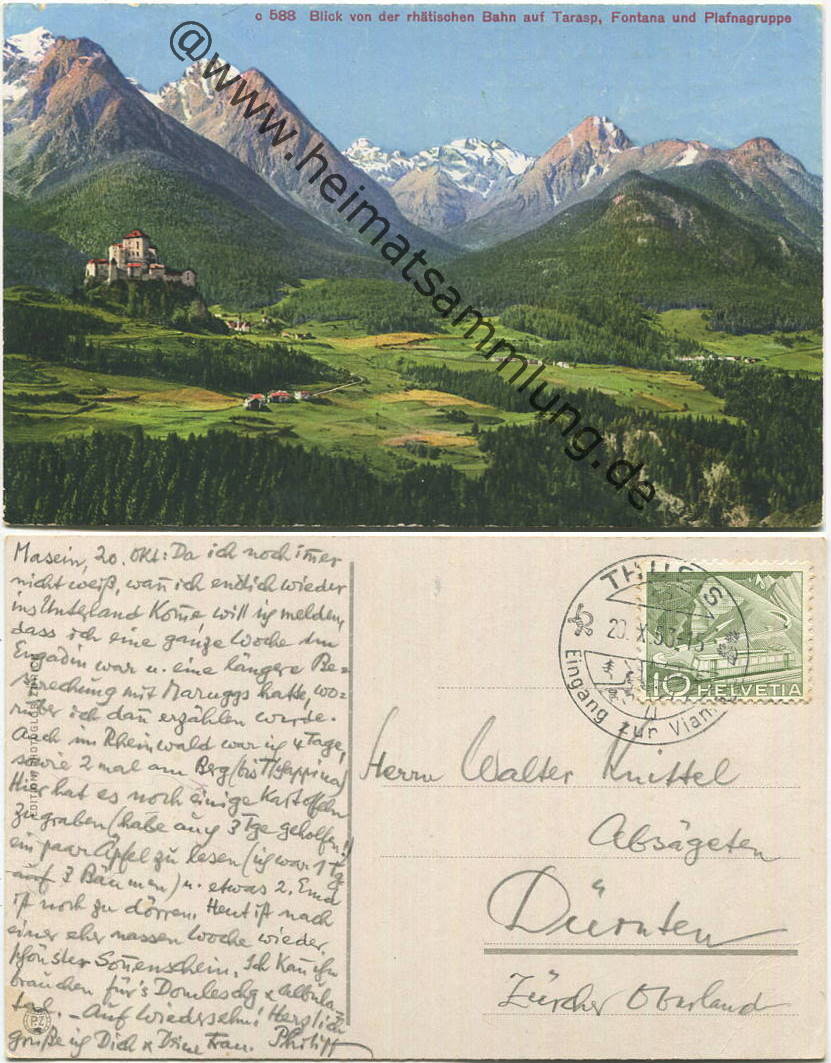 c 588 Blick von der rhätischen Bahn auf Tarasp, Fontana und Plafnagruppe
@www.heimatsammlung.de
Masein, 20. Okt: Da ich noch im̅er
nicht weiß, wan̅ ich endlich wieder
ins Unterland kom̅e, will ich melden,
dass ich eine ganze Woche im
Engadin war u. eine längere Be=
sprechung mit Maruggs hatte, wo=
rüber ich dan̅ erzählen werde.
Auch im Rheinwald war ich 4 Tage,
sowie 2 mal am Berg (bis Tschappina)
Hier hat es noch einige Kartoffeln
zu graben (habe auch 3 Tge geholfen!)
ein paar Äpfel zu lesen (ich war 1 Tg
auf 3 Bäumen) u. etwas 2. Emd
ist noch zu dörren. Heut ist nach
einer eher nassen Woche wieder
schönster Son̅enschein. Ich kan̅ ihn
brauchen für's Domleschg & Albula
tal. – Auf Wiedersehn! Herzlich
grüße ich Dich & Deine Frau. Philipp
EDITION PHOTOGLOB ZÜRICH
PZ
THUSIS
20.X.53-15
Eingang zur Viam
10 HELVETIA
Herrn Walter Knittel
Absägeten
Dürnten
Zürcher Oberland